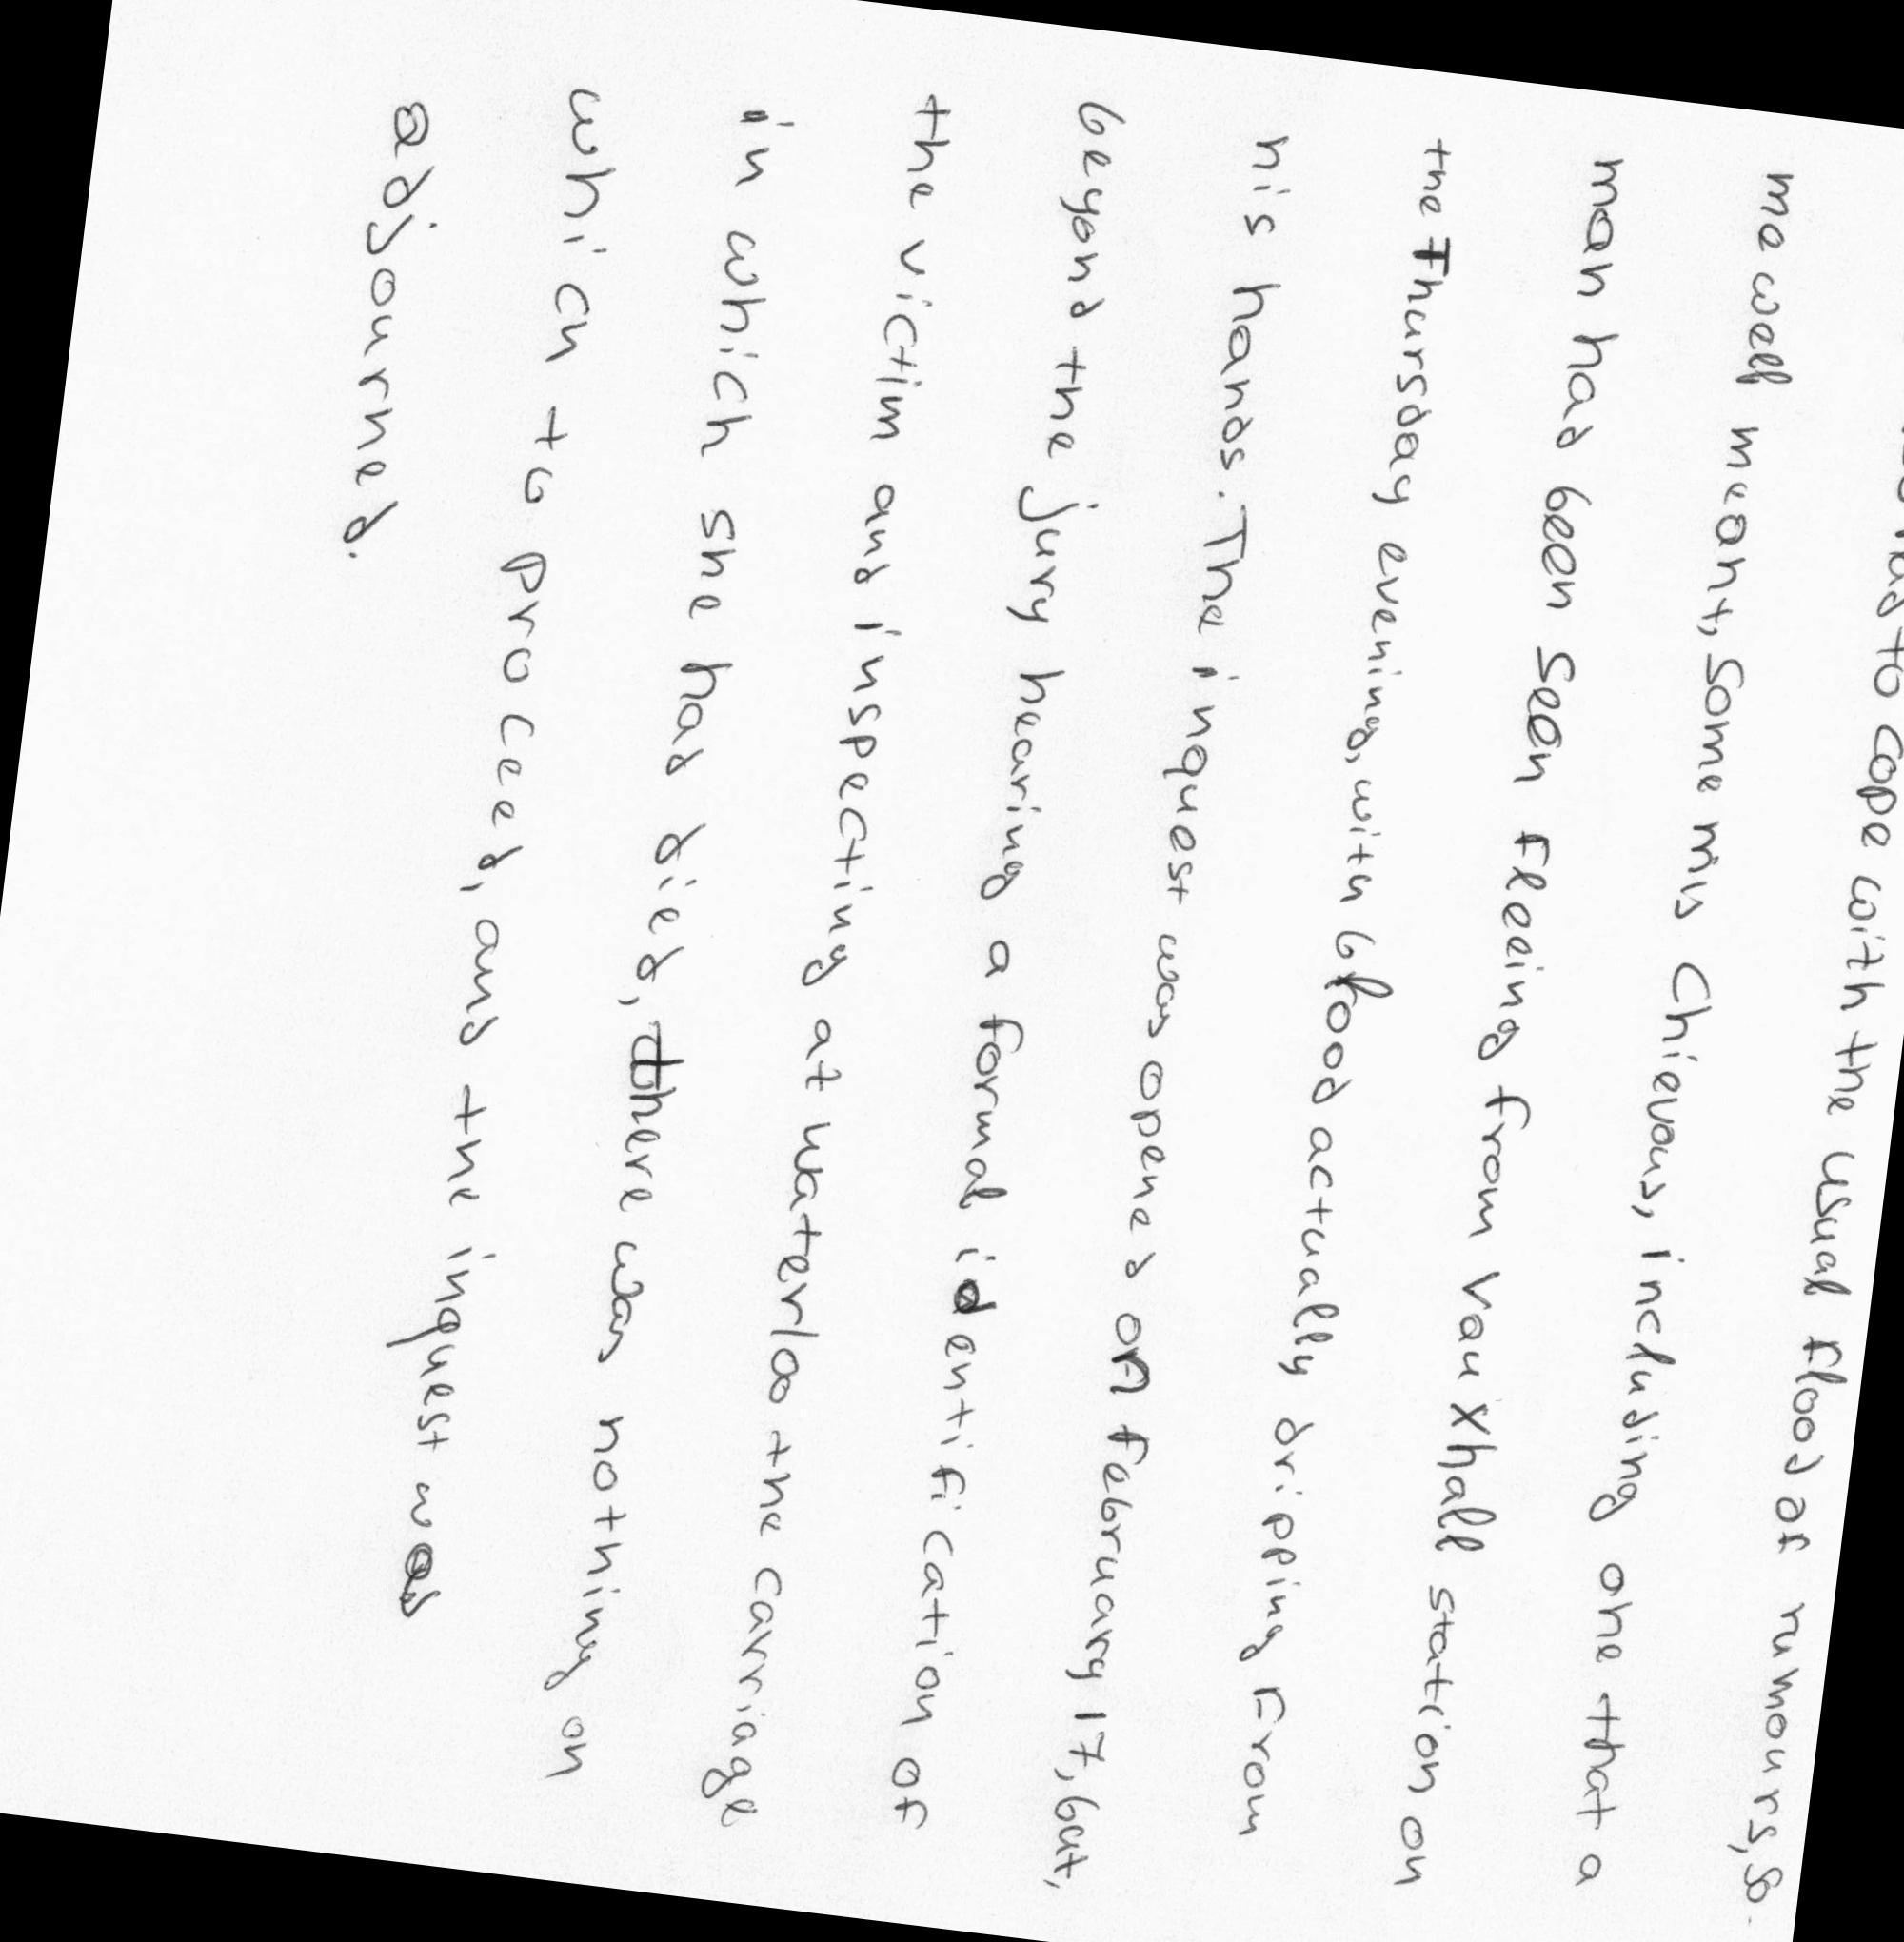 to cope with the usual flood of rumours, so-
me well meant, some mis chievous, including one that a
man had been seen fleeing from Vauxhall station on
the Thursday evening, with blood actually dripping From
his hands. The inquest was opened on February 17, but,
beyond the jury hearing a formal identification of
the victim and inspecting at Waterloo the carriage
in which she had died, there was nothing on
which to proceed, and the inquest was
adjourned.